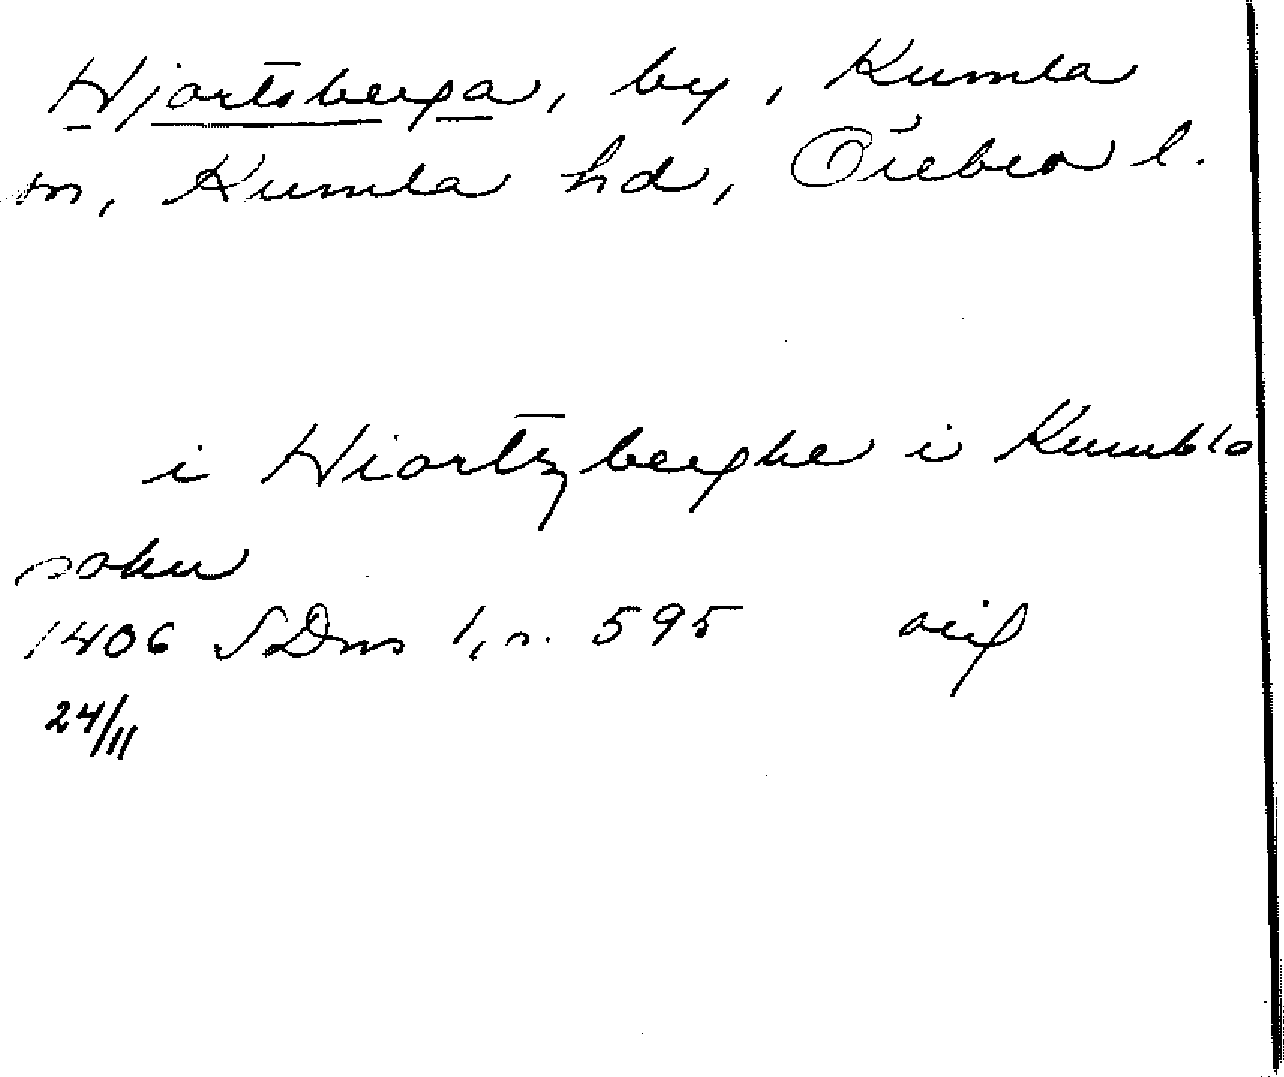 Hjortsberga, by, Kumla
sn, Kumla hd, Örebro l.
i Hiortzberghe i Kumblo
sokn
1406 SDns 1, s. 595 orig
24/11